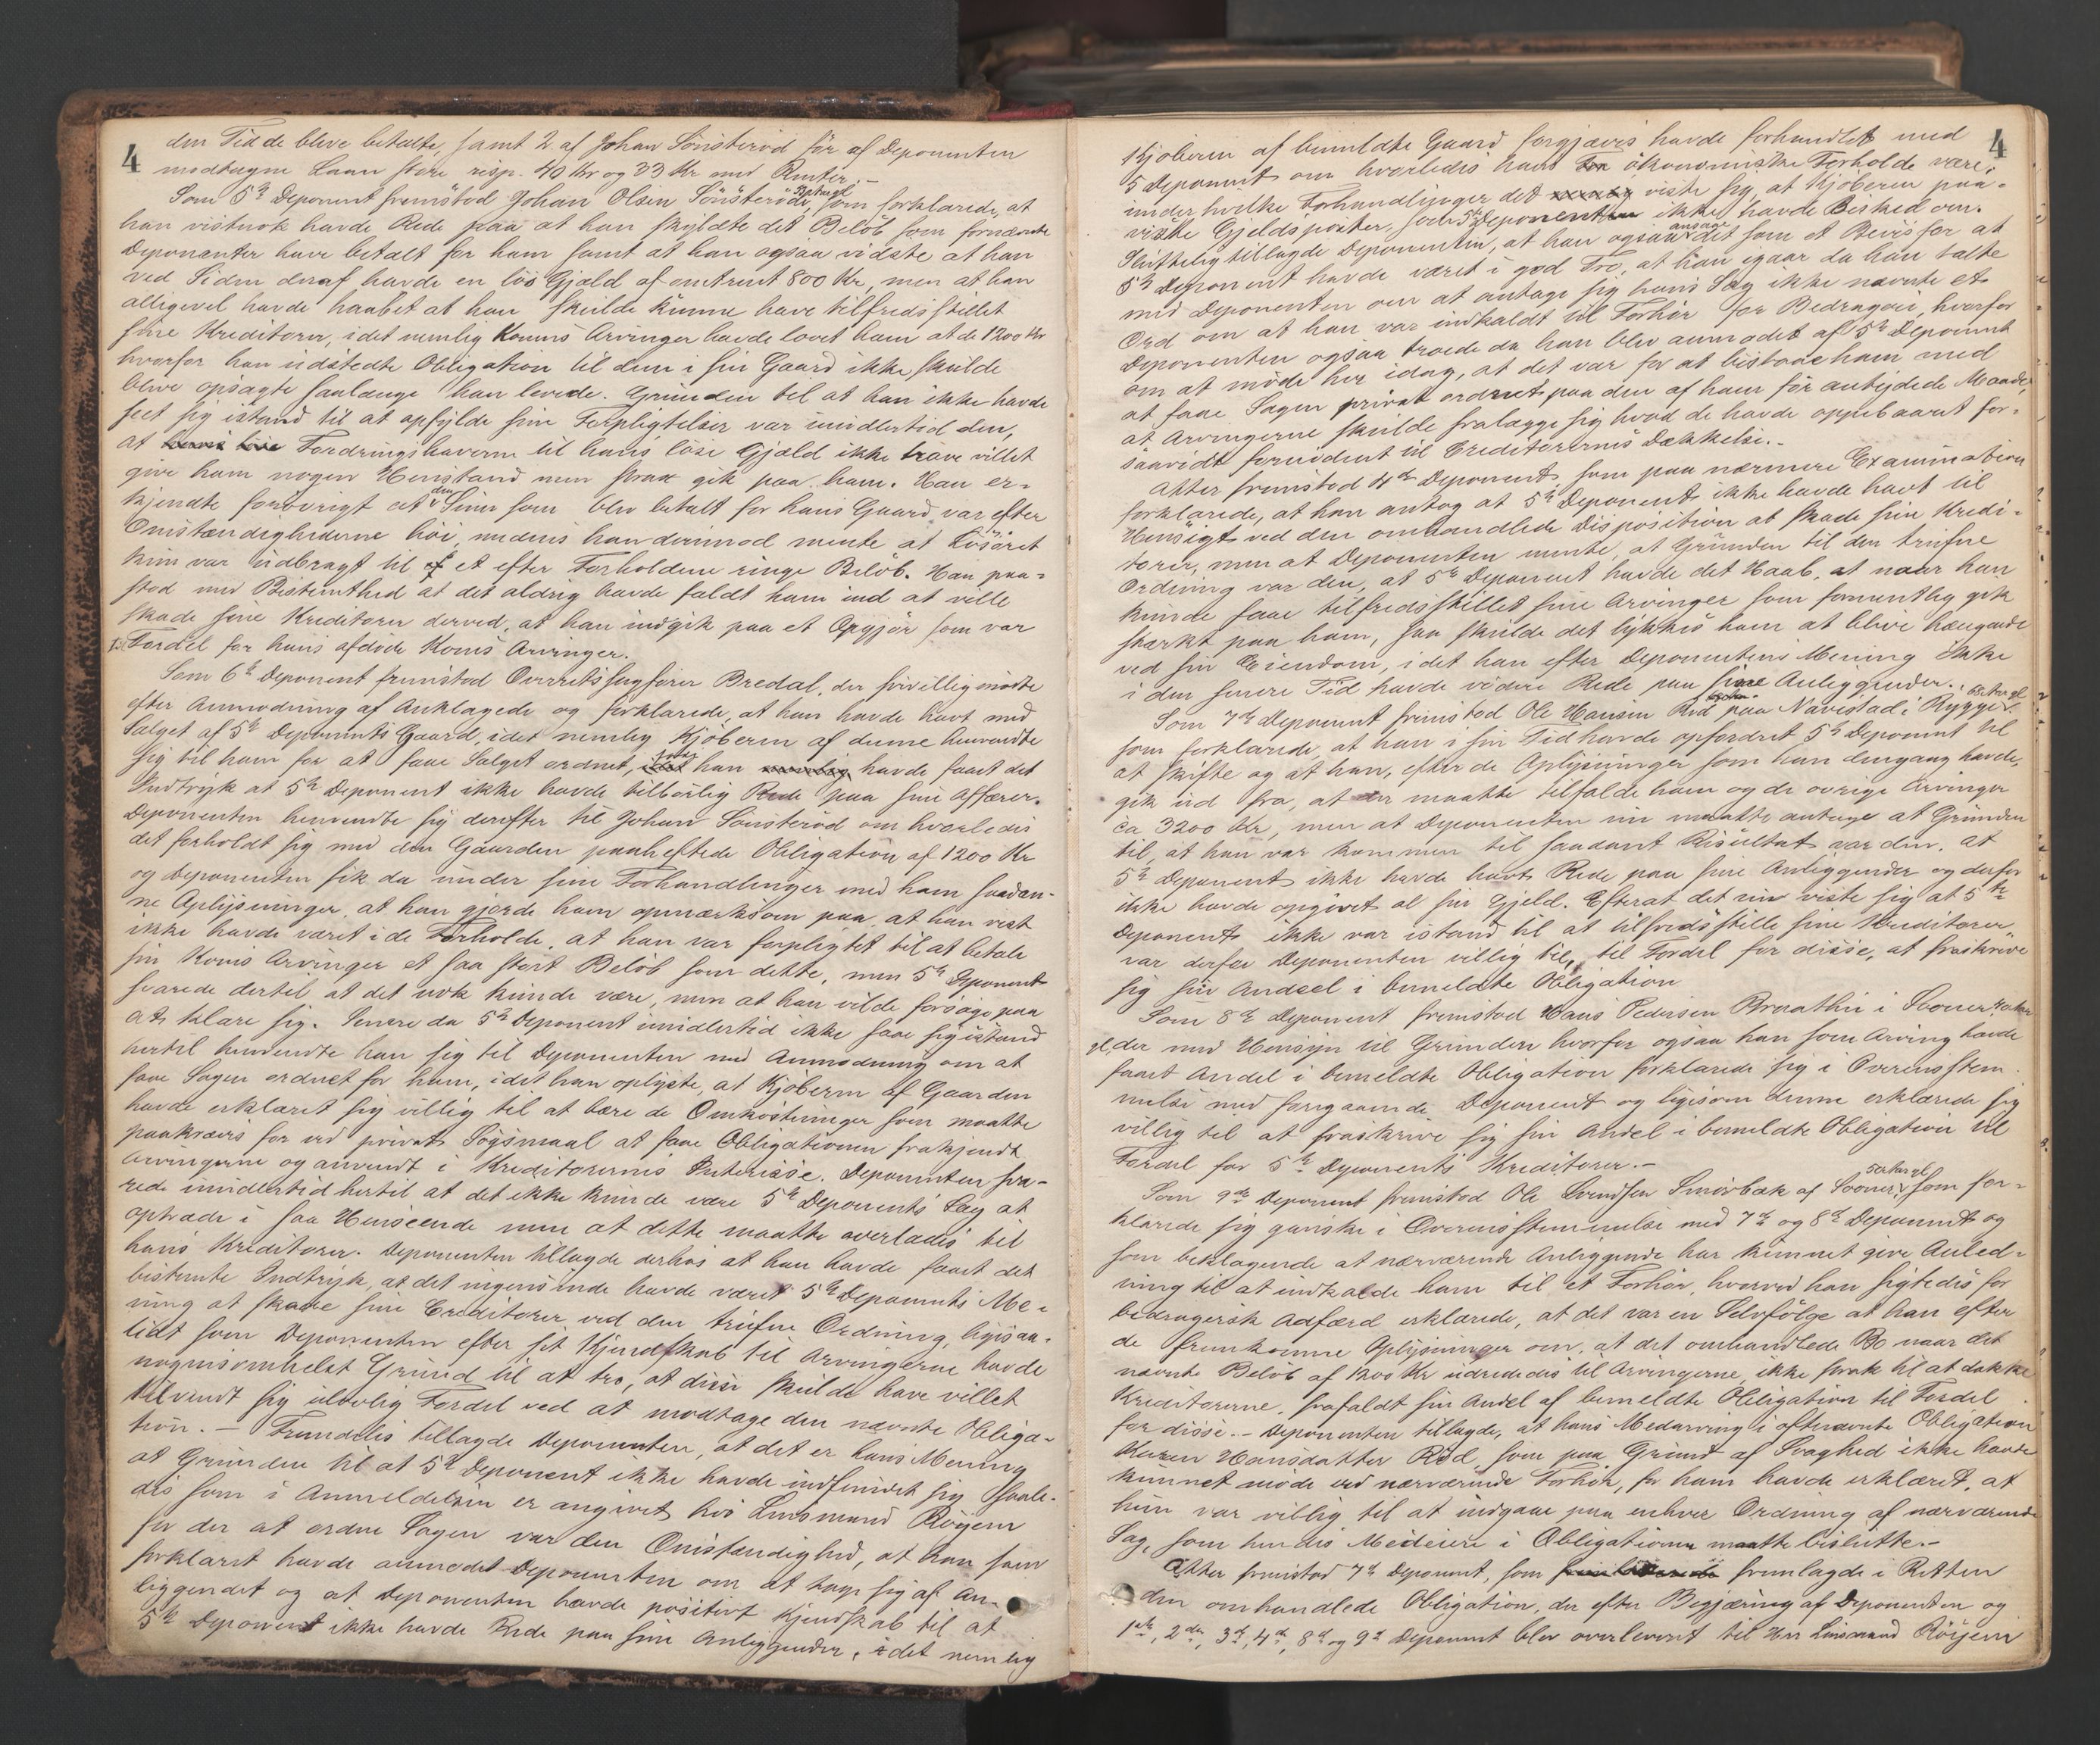 4
den Tid de bleve betalte, samt 2 af Johan Sönsteröd för af Deponenten
modtagne Laan store resp. 40 Kr og 33 Kr med Renter.-
Som 5te Deponent fremstod Johan Olsen Sönsteröd, som forklarede, at
han vistnok havde Rede paa at han skyldte det Belöb som fornævnte
Deponenter have betalt for ham samt at han ogsaa vidste at han
ved Siden deraf havde en lös Gjæld af omtrent 800 Kr, men at han
alligevel havde haabet at han skulde kunne have tilfredsstillet
sine Kreditorer, idet nemlig Konens Arvinger havde lovet ham at de 1200 Kr
hvorfor han udstedte Obligation til dem i sin Gaard ikke skulde
blive opsagte saalænge han levede. Grunden til at han ikke havde
seet sig istand til at opfylde sine Forpligtelser var imidlertid den,
at hans löse Fordringshaverne til hans löse Gjæld ikke have villet
give ham nogen Henstand men strax gik paa ham. Han er-
kjendte forövrigt at den Sum som blev betalt for hans Gaard var efter
Omstændighederne höi, medens han derimod mente at Lösöret
kun var udbragt til et efter Forholdene ringe Belöb. Han paa-
stod med Bestemthed at det aldrig havde faldt ham ind at ville
skade sine Kreditorer derved, at han indgik paa et Opgjör som var
til Fordel for hans afdöde Kones Arvinger.
Som 6te Deponent fremstod Overretssagförer Bredal, der frivillig mödte
efter Anmodning af Anklagede og forklarede, at han havde havt med
Salget af 5te Deponents Gaard, idet nemlig Kjöberen af denne henvendte
sig til ham for at faae Salget ordnet, han havde faaet det
Indtryk at 5te Deponent ikke havde tilbörlig Rede paa sine Affærer.
Deponenten henvendte sig derefter til Johan Sönsteröd om hvorledes
det forholdt sig med den Gaarden paaheftede Obligation af 1200 Kr
og Deponenten fik da under sine Forhandlinger med ham saadan-
ne Oplysninger, at han gjorde ham opmærksom paa, at han vist
ikke havde været i de Forholde, at han var forpligtet til at betale
sin Kones Arvinger et saa stort Belöb som dette, men 5te Deponent
svarede dertil at det nok kunde være, men at han vilde forsöge paa
at klare sig. Senere da 5te Deponent imidlertid ikke saae sig istand
hertil henvendte han sig til Deponenten med Anmodning om at
faae Sagen ordnet for ham, idet han oplyste, at Kjöberen af Gaarden
havde erklæret sig villig til at bære de Omkostninger som maatte
paakræves for ved privat Sögsmaal at faae Obligationen frakjendt
Arvingerne og anvendt i Kreditorernes Interesse. Deponenten sva-
rede imidlertid hertil at det ikke kunde være 5te Deponents Sag at
optræde i saa Henseende men at dette maatte overlades til
hans Kreditorer. Deponenten tillagde derhos at han havde faaet det
bestemte Indtryk, at det ingensinde havde været 5te Deponents Me-
ning at skade sine Creditorer ved den trufne Ordning, ligesaa-
lidt som Deponenten efter sit Kjendskab til Arvingerne havde
nogensomhelst Grund til at tro, at disse skulde have villet
tilvendt sig ulovlig Fordel ved at modtage den nævnte Obliga-
tion. - Fremdeles tillagde Deponenten, at det er hans Mening
at Grunden til at 5te Deponent ikke havde indfundet sig saale-
des som i Anmeldelsen er angivet hos Lensmand Röyem
for der at ordne Sagen var den Omstændighed, at han som
forklaret havde anmodet Deponenten om at tage sig af An-
liggendet og at Deponenten havde positivt Kjendskab til at
5te Deponent ikke havde Rede paa sine Anliggender, idet nemlig
4
Kjöberen af bemeldte Gaard forgjæves havde forhandlet med
5 Deponent om hvorledes hans ökonomiske Forholde vare,
under hvilke Forhandlinger det viste sig, at Kjöberen paa-
viste Gjeldsposter, som 5te Deponenten ikke havde Besked om.
Sluttelig tillagde Deponenten, at han ogsaa ansaa det som et Bevis for at
5te Deponent havde været i god Tro, at han igaar da han talte
med Deponenten om at antage sig hans Sag ikke nævnte et
Ord om at han var indkaldt til Forhör for Bedrageri, hvorfor
Deponenten ogsaa troede da han blev anmodet af 5te Deponent
om at möde her idag, at det var for at bistaae ham med
at faae Sagen privat ordnet paa den af ham för antydede Maade,
at Arvingerne skulde fralægge sig hvad de havde oppebaaret for-
saavidt fornödent til Creditorernes Dækkelse.-
Atter fremstod 4de Deponent, som paa nærmere Examination
forklarede, at han antog at 5te Deponent ikke havde havt til
Hensigt ved den omhandlede Disposition at skade sine Kredi-
torer, men at Deponenten mente, at Grunden til den trufne
Ordning var den, at 5te Deponent havde det Haab, at naar han
kunde faae tilfredsstillet sine Arvinger som formentlig gik
stærkt paa ham, saa skulde det lykkes ham at blive hængende
ved sin Eiendom, idet han efter Deponentens Mening ikke
i den senere Tid havde videre Rede paa sine Anliggender.
Som 7de Deponent fremstod Ole Hansen Röd paa Navestad i Rygge
som forklarede, at han i sin Tid havde opfordret 5te Deponent til
at skifte og at han, efter de Oplysninger som han dengang havde,
gik ud fra, at der maatte tilfalde ham og de övrige Arvinger
ca 3200 Kr, men at Deponenten nu maatte antage at Grunden
til, at han var kommen til saadant Resultat var den, at
5te Deponent ikke havde havt Rede paa sine Anliggender og derfor
ikke havde opgivet al sin Gjeld. Efterat det nu viste sig at 5te
Deponent ikke var istand til at tilfredsstille sine Kreditorer,
var derfor Deponenten villig til, til Fordel for disse, at fraskrive
sig sin Andeel i bemeldte Obligation
Som 8de Deponent fremstod Hans Pedersen Braathen i Sooner
der med Hensyn til Grunden hvorfor ogsaa han som Arving havde
faaet Andel i bemeldte Obligation forklarede sig i Overensstem-
melse med foregaaende Deponent og ligesom denne erklærede sig
villig til at fraskrive sig sin Andel i bemeldte Obligation til
Fordel for 5te Deponents Kreditorer.-
Som 9de Deponent fremstod Ole Svendsen Smörbæk af Sooner, som for-
klarede sig ganske i Overensstemmelse med 7de og 8de Deponent og
som beklagende at nærværende Anliggende har kunnet give Anled-
ning til at indkalde ham til et Forhör, hvorved han sigtedes for
bedragersk Adfærd erklærede, at det var en Selvfölge at han efter
de fremkomne Oplysninger om, at det omhandlede Bo naar det
nævnte Belöb af 1200 Kr udrededes til Arvingerne, ikke strak til at dække
Kreditorerne, frafaldt sin Andel af bemeldte Obligation til Fordel
for disse.- Deponenten tillagde, at hans Medarving i oftnævnte Obligation
Maren Hansdatter Röd, som paa Grund af Svaghed ikke havde
kunnet möde ved nærværende Forhör, for ham havde erklæret, at
hun var villig til at indgaae paa enhver Ordning af nærværende
Sag, som hendes Medeiere i Obligationen maatte beslutte.-
Atter fremstod 7de Deponent, som fremlagde i Retten
den omhandlede Obligation, der efter Begjæring af Deponenten og
1ste, 2den, 3die, 4de, 8de og 9de Deponent blev overleveret til Hr Lensmand Röyem